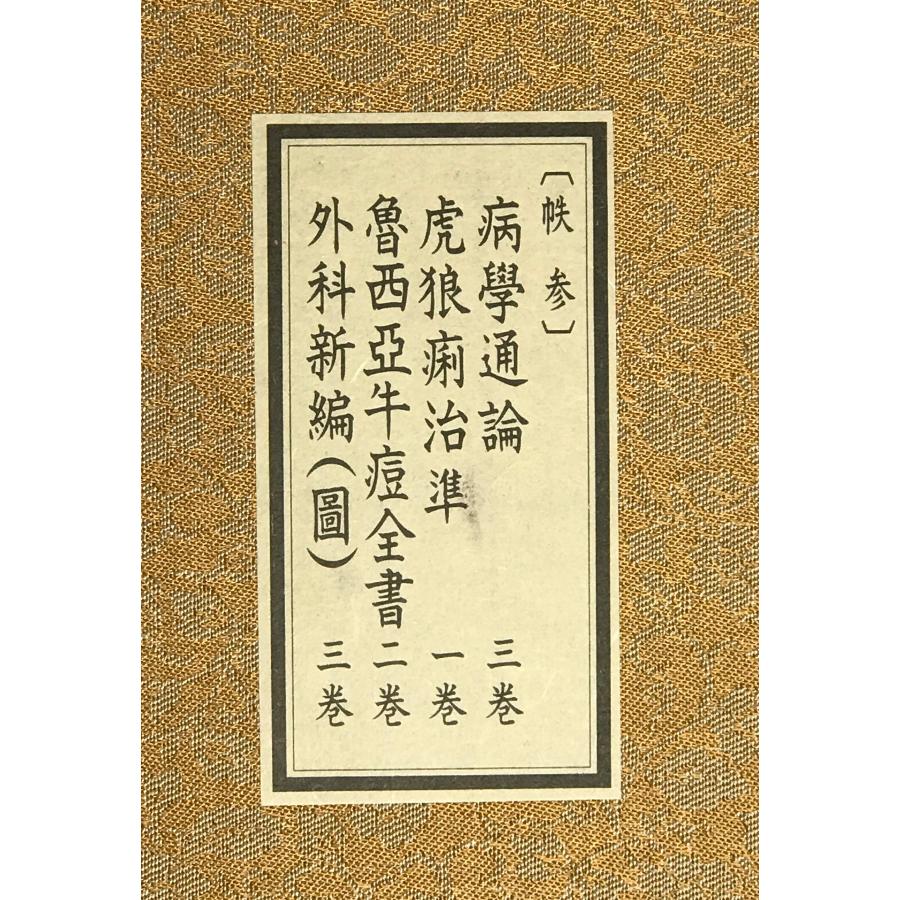 〔帙 参〕
病學通論 三巻
虎狼痢治準 一巻
魯西亞牛痘全書 二巻
外科新編(圖) 三巻